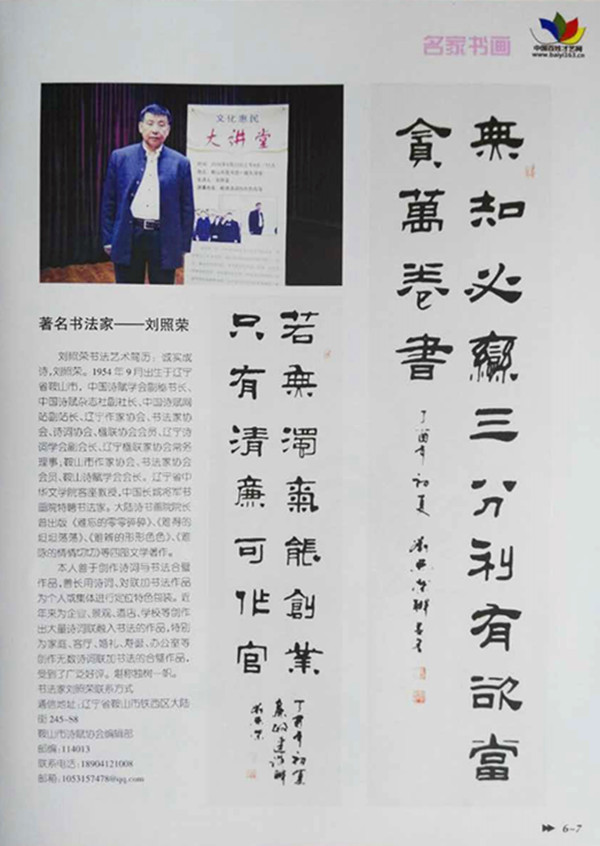 名家书画
中国百姓才艺网
www.baiyi163.cn
文化惠民
大讲堂
無知必變三分利有欲當
貪萬卷書
丁酉年初夏
若無濁氣能創業
只有清廉可作官
丁酉年初夏
著名书法家——刘照荣
刘照荣书法艺术简历：诚实成
诗，刘照荣。1954年9月出生于辽宁
省鞍山市，中国诗赋学会副秘书长、
中国诗赋杂志社副社长、中国诗赋网
站副站长、辽宁作家协会、书法家协
会、诗词协会、楹联协会会员、辽宁诗
词学会副会长、辽宁楹联家协会常务
理事；鞍山市作家协会、书法家协会
会员、鞍山诗赋学会会长。辽宁省中
华文学院客座教授，中国长城将军书
画院特聘书法家。大陆诗书画院院长
曾出版《难忘的零零碎碎》、《难得的
坦坦荡荡》、《难辨的形形色色》、《难
咏的情情切切》等四部文学著作。
本人善于创作诗词与书法合璧
作品，善长用诗词、对联加书法作品
为个人或集体进行定位特色包装。近
年来为企业、景观、酒店、学校等创作
出大量诗词联融入书法的作品，特别
为家庭、客厅、婚礼、寿诞、办公室等
创作无数诗词联加书法的合璧作品，
受到了广泛好评。堪称独树一帜。
书法家刘照荣联系方式
通信地址：辽宁省鞍山市铁西区大陆
街245-S8
鞍山市诗赋协会编辑部
邮编：114013
联系电话：18904121008
邮箱：1053157478@qq.com
6-7